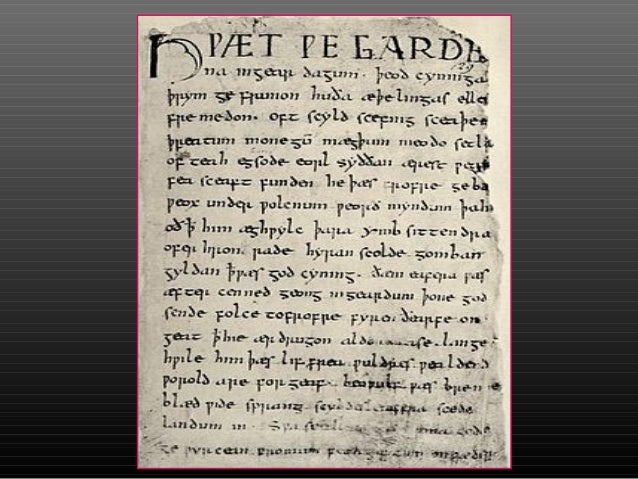 HǷÆT ǷE GARDE
na ingear dagum. þeod cyninga
þrym ge frunon huða æþelingas elle
fremedon. oft scyld scefing sceaþe
þreatum monegū mægþum meodo setla
of teah egsode eorl syððan ærest ƿear
fea sceaft funden he þæs frofre geba
ƿeox under ƿolcnum ƿeorð myndum þah
oð þ̄ him æghƿylc þara ymb sittendra
ofer hron rade hyran scolde gomban
gyldan þ̄ ƿæs god cyning. ðæm eafera ƿæs
æfter cenned geong ingeardum þone god
sende folce tofrofre fyren ðearfe on
geat þ̄ hie ær drugon aldor ase. lange
hƿile him þæs lif frea ƿuldres ƿealdend
ƿorold are forgeaf. beoƿulf ƿæs breme
blæd ƿide sprang scyldes eafera scede
landum in. Sƿa guma gode
ge ƿyrcean fromum feoh giftum on fæder